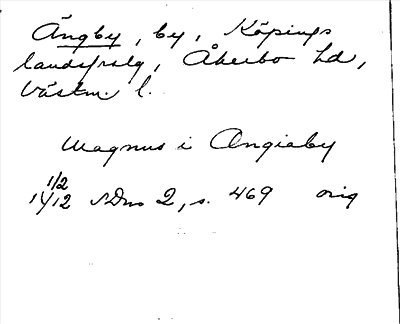 Ängby, by, Köpings
landsfrslg, Åkerbo hd,
Västm. l.
Magnus i Ængiaby
1/2
1412 SDns 2, s. 469 orig